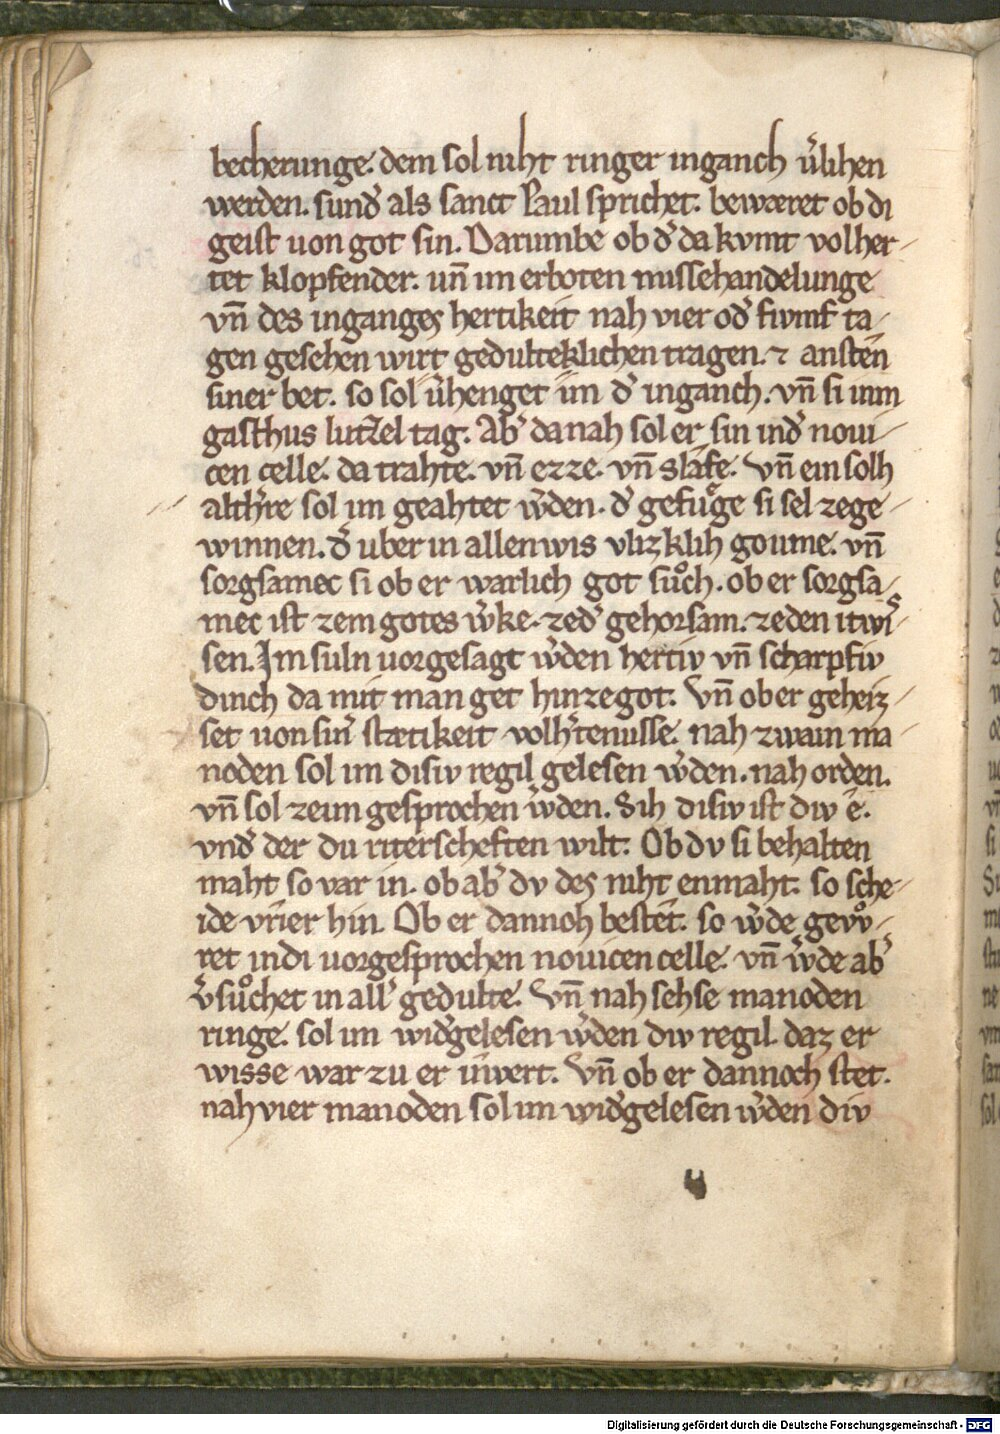 becherunge. dem sol niht ringer inganch v̓lihen
werden. sund̓ als sanct Paul sprichet. bewæret ob di
geist uon got sin. Darumbe ob d̓ da kvmt volher-
tet klopfender. un̄ im erboten missehandelunge
vn̄ des inganges hertikeit nah vier od̓ fivmf ta-
gen gesehen wirt gedulteklichen tragen. ⁊ ansten
siner bet. so sol v̓henget im d̓ inganch. vn̄ si inm
gasthus lutzel tag. Ab̓ danah sol er sin ind̓ noui-
cen celle. da trahte. vn̄ ezze. vn̄ slafe. Vn̄ ein solh
alth̓re sol im geahtet w̓den. d̓ gefuͤge si sel zege-
winnen. d̓ uber in allen wis vlizklih goume. vn̄
sorgsamec si ob er warlich got suͦch. ob er sorgsa-
mec ist zem gotes w̓ke. zed̓ gehorsam. zeden itwi-
sen. Im suln uorgesagt w̓den hertiv vn̄ scharpfiv
dinch da mit man get hinzegot. Vn̄ ob er geheiz-
set uon sin̓ stætikeit volh̓tenusse. nah zwain ma
noden sol im disiv regil gelesen w̓den. nah orden.
vn̄ sol zeim gesprochen w̓den. Sih disiv ist div e.
vnd̓ der du riterscheften wilt. Ob dv si behalten
maht so var in. ob ab̓ dv des niht enmaht. so sche-
ide vrier hin. Ob er dannoh bestet. so w̓de gevͦ-
ret indi uorgesprochen nouicen celle. vn̄ w̓de ab̓
v̓suͦchet in all̓ gedulte. Vn̄ nah sehse manoden
ringe. sol im wid̓gelesen w̓den div regil. daz er
wisse war zu er inwert. Vn̄ ob er dannoch stet.
nah vier manoden sol im wid̓gelesen w̓den div
Digitalisierung gefördert durch die Deutsche Forschungsgemeinschaft - DFG